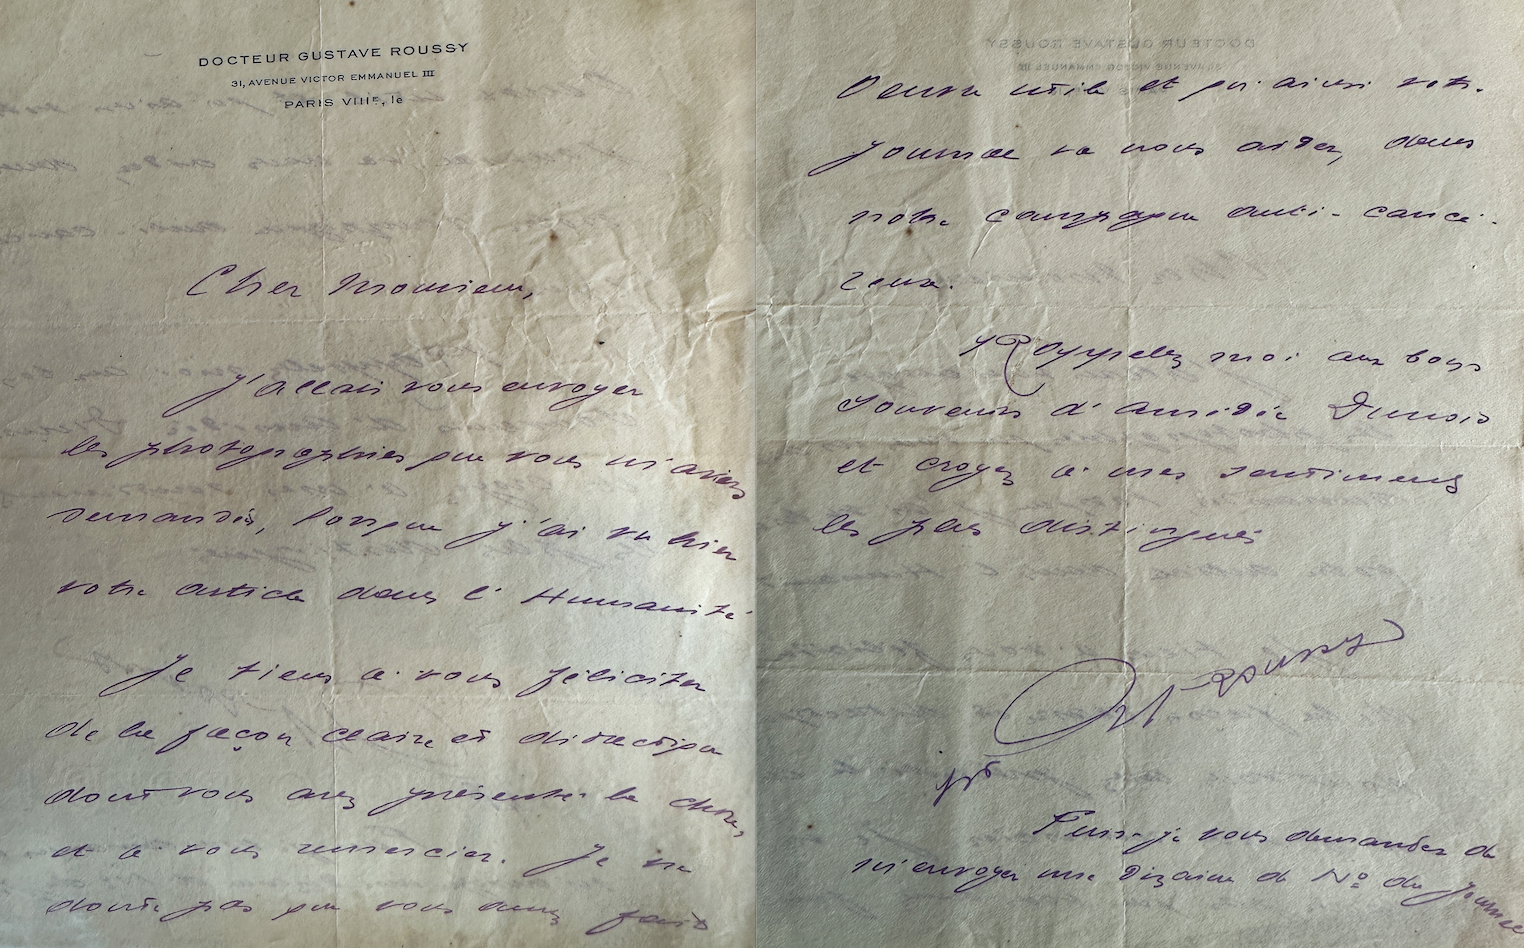 DOCTEUR GUSTAVE ROUSSY
31, AVENUE VICTOR EMMANUEL III
PARIS VIIIE, le
Cher Monsieur,
J'allais vous envoyer
les photographies que vous m'aviez
demandées, lorsque j'ai vu hier
votre article dans l'Humanité
Je tiens à vous féliciter
de la façon claire et didactique
dont vous avez présenté la chose,
et à vous remercier. Je ne
doute pas que vous avez fait
Oeuvre utile et qu'ainsi votre
journal va nous aider, dans
notre campagne anti-cancé-
reuse.
Rappelez moi aux bons
souvenirs d'Amédée Dunois
et croyez à mes sentiments
les plus distingués
Roussy
Puis-je vous demander de
m'envoyer une dizaine de Nos du journal